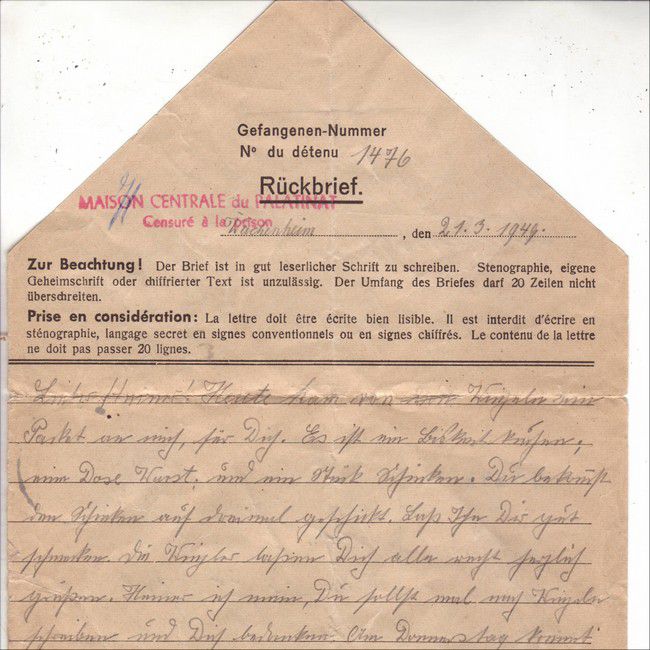 Gefangenen-Nummer
Nº du détenu 1476
Rückbrief.
MAISON CENTRALE du PALATINAT
Censuré à la prison
Wachenheim, den 21.3.1949.
Zur Beachtung! Der Brief ist in gut leserlicher Schrift zu schreiben. Stenographie, eigene
Geheimschrift oder chiffrierter Text ist unzulässig. Der Umfang des Briefes darf 20 Zeilen nicht
überschreiten.
Prise en considération: La lettre doit être écrite bien lisible. Il est interdit d'écrire en
sténographie, langage secret en signes conventionnels ou en signes chiffrés. Le contenu de la lettre
ne doit pas passer 20 lignes.
Lieber Heiner! Heute kam von Kinzeler ein
Packet an mich, für Dich. Es ist ein Biskuit kuchen,
eine Dose Wurst, und ein Stück Schinken. Du bekomst
den Schinken auf dreimal geschickt. Laß Ihn Dir gut
schmecken. Die Kinzler laßen Dich alle recht herzlich
grüßen. Heiner ich meine, Du sollst mal nach Kinzeler
schreiben und Dich bedanken. Am Donnerstag kommt